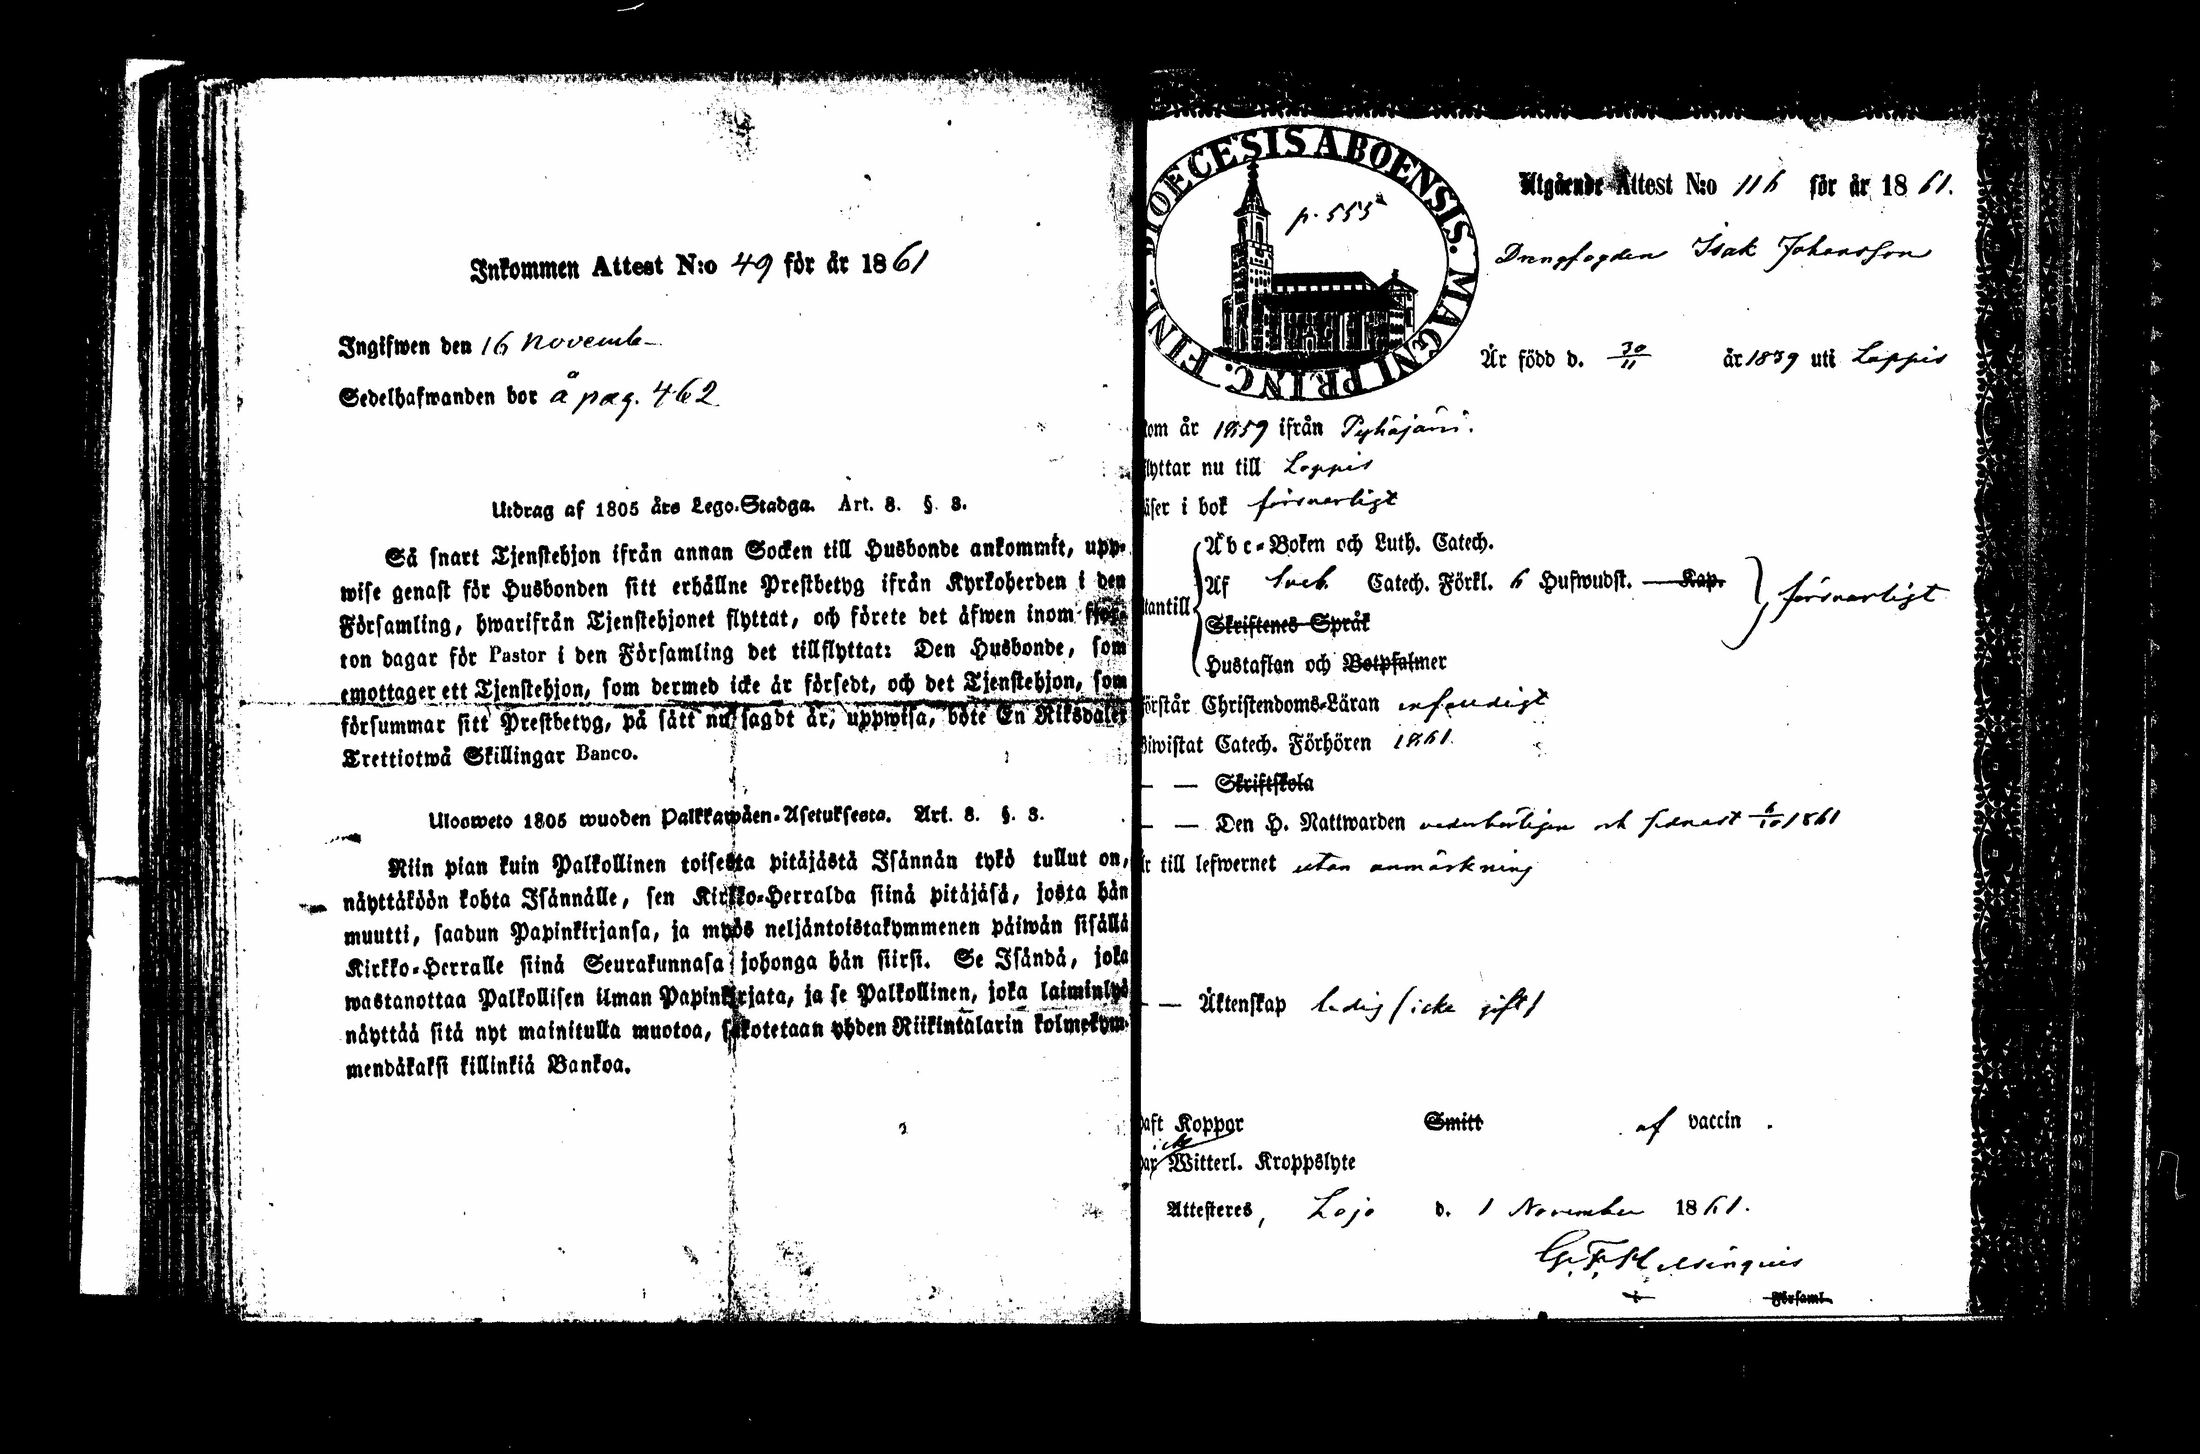 Inkommen Attest N:o 49 för år 1861
Ingifwen den 16 novemb
Sedelhafwanden bor å pag. 462
Utdrag af 1805 års Lego-Stadga. Art. 8. §. 3.
Så snart Tjenstehjon ifrån annan Socken till Husbonde ankommit, upp-
wise genast för Husbonden sitt erhållne Prestbetyg ifrån Kyrkoherden i den
Församling, hwarifrån Tjenstehjonet flyttat, och förete det äfwen inom fjor-
ton dagar för Pastor i den Församling det tillflyttat: Den Husbonde, som
emottager ett Tjenstehjon, som dermed icke är försedt, och det Tjenstehjon, som
försummar sitt Prestbetyg, på sätt nu sagdt är, uppwisa, böte En Riksdaler
Trettiotwå Skillingar Banco.
Ulosweto 1805 wuoden Palkkawäen-Asetuksesta. Art. 8. §. 3.
Niin pian kuin Palkollinen toisesta pitäjästä Isännän tykö tullut on,
näyttäköön kohta Isännälle, sen Kirkko-Herralda siinä pitäjäsä, josta hän
muutti, saadun Papinkirjansa, ja myös neljäntoistakymmenen päiwän sisällä
Kirkko-Herralle siinä Seurakunnasa johonga hän siirsi. Se Isändä, joka
wastanottaa Palkollisen ilman Papinkirjata, ja se Palkollinen, joka laiminlyö
näyttää sitä nyt mainitulla muotoa, sakotetaan yhden Riikintalarin kolmekym-
mendäkaksi killinkiä Bankoa.
DIOECESIS ABOENSIS. MAGNI PRINC. FINL.
p. 555
Utgående Attest N:o 116 för år 1861.
Drengfogden Isak Johansson
Är född d. 30/11 år 1839 uti Loppis
kom år 1859 ifrån Pyhäjärvi.
flyttar nu till Loppis
läser i bok försvarligt
utantill
A b c-Boken och Luth. Catech.
Af Sveb. Catech. Förkl. 6 Hufwudst. Kap.
Skriftenes Språk
Hustaflan och Botpsalmer
försvarligt
förstår Christendoms-Läran enfaldigt
Biwistat Catech. Förhören 1861.
— — Skriftskola
— — Den H. Nattwarden vederbörligen och sednast 6/10 1861
är till lefwernet utan anmärkning
— — Äktenskap ledig (icke gift)
haft Koppor Smitt af vaccin .
icke
har Witterl. Kroppslyte
Attesteres, Lojo d. 1 November 1861.
G. F. Helsingius
i Församl.